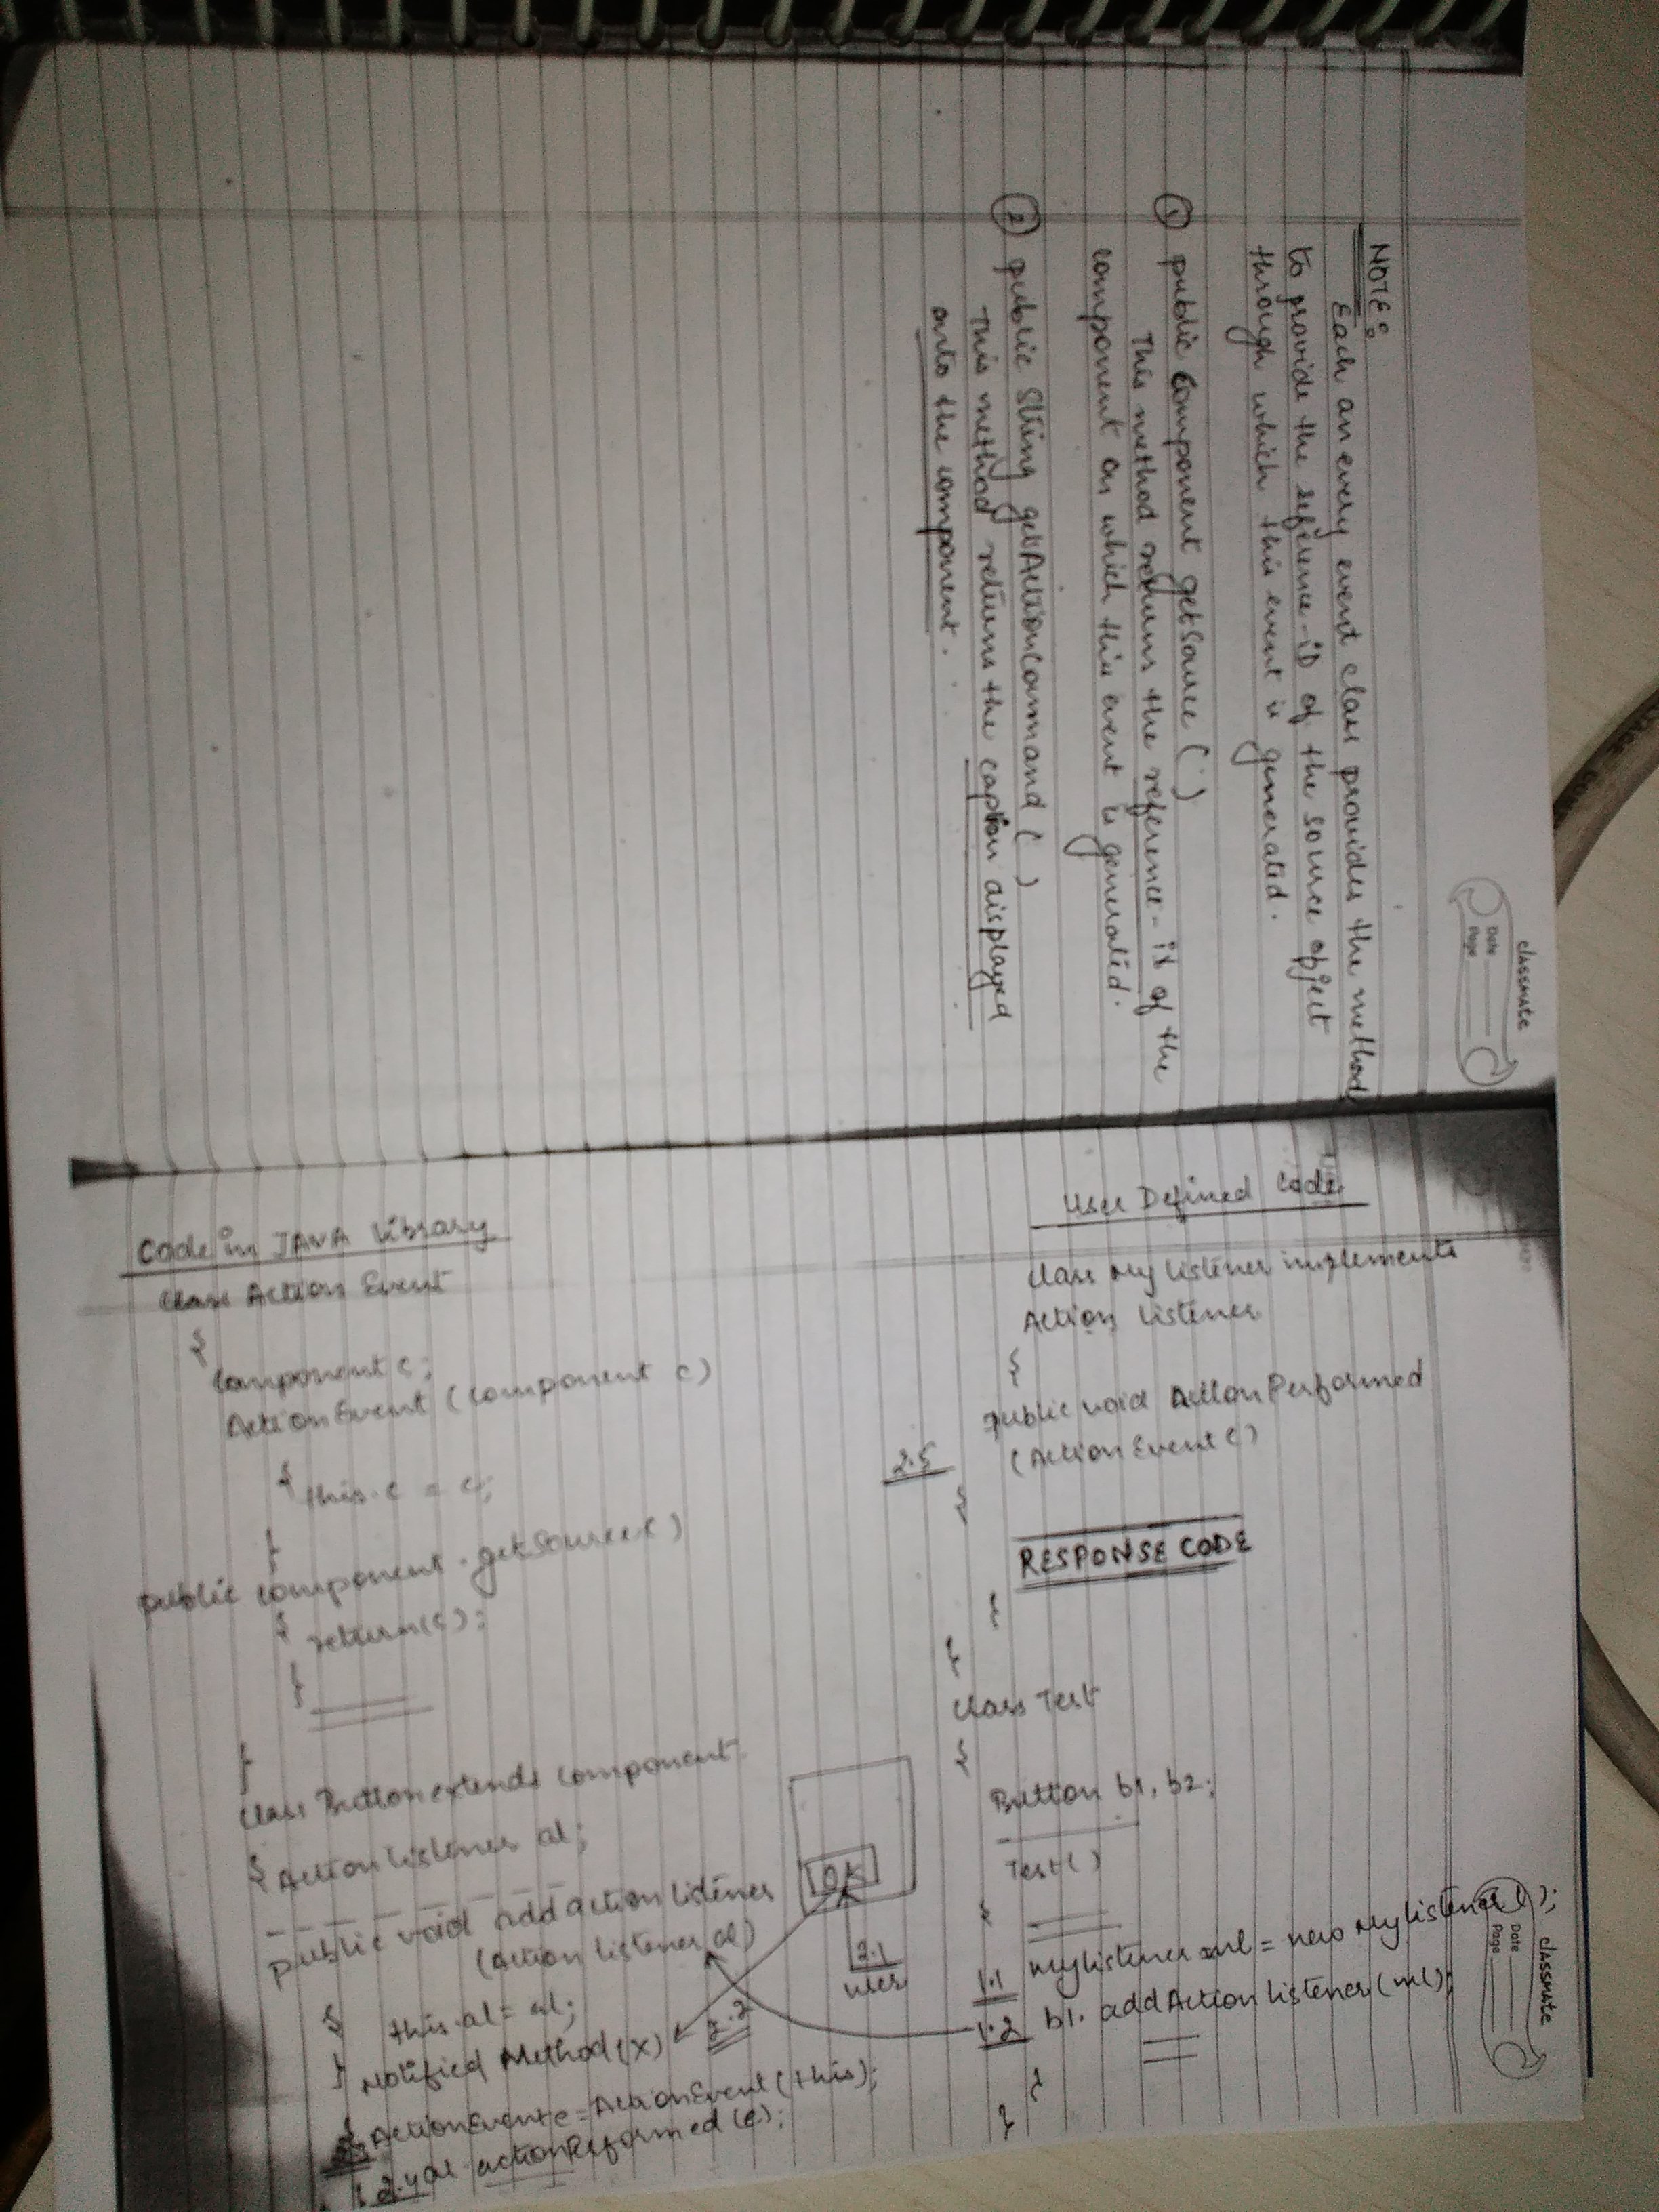 classmate
Date
Page
NOTE:
Each an every event class provides the method
to provide the reference-ID of the source object
through which this event is generated.
① public Component getSource ( )
This method returns the reference-id of the
component on which this event is generated.
② public String getActionCommand ( )
This method returns the caption displayed
onto the component.
Code in JAVA Library
Class Action Event
{
Component c;
ActionEvent (Component c)
{ this.c = c;
}
public Component. getSource( )
{ return(c);
}
}
Class Button extends Component
{ ActionListener al;
public void addActionListener
(Action Listener al)
{ this.al = al;
} Notified Method (x)
{ ActionEvent e = ActionEvent (this);
2.4 al. actionPerformed (e);
OK
2.1
user
2.2
User Defined Code
Class My Listener implements
Action Listener
{
public void ActionPerformed
(Action Event e)
2.5
{
RESPONSE CODE
}
}
Class Test
{
Button b1, b2;
Test( )
{
1.1 MyListener ml = new MyListener( );
1.2 b1. addActionListener (ml);
}
}
classmate
Date
Page